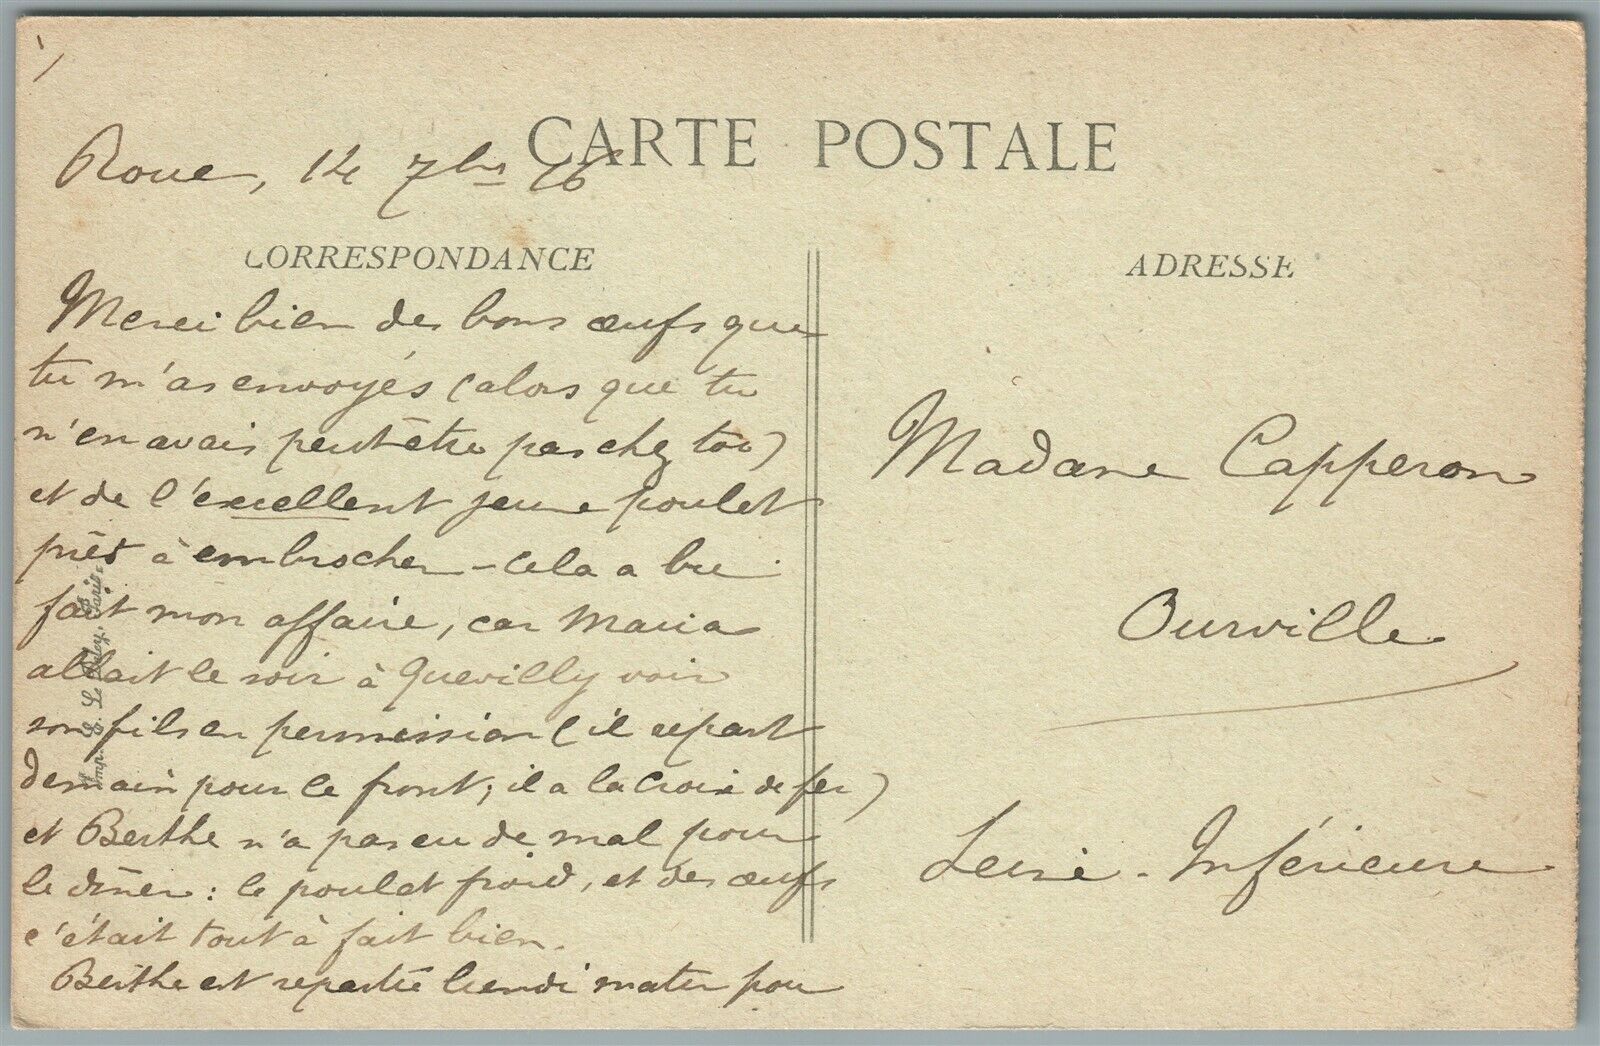 CARTE POSTALE
Roue, 14 7bre 16
CORRESPONDANCE
Merci bien des bons œufs que
tu m'as envoyés (alors que tu
n'en avais peut être pas chez toi)
et de l'excellent jeune poulet
prêt à embrocher - cela a bie
fait mon affaire, car Maria
allait le soir à Quevilly voir
son fils en permission (il repart
demain pour le front; il a la croix de fer)
et Berthe n'a pas eu de mal pour
le dîner : le poulet froid, et des œufs
c'était tout à fait bien.
Berthe est repartie lundi matin pou
Imp. E. Le Deley, Paris
ADRESSE
Madame Capperon
Ourville
Seine-Inférieure